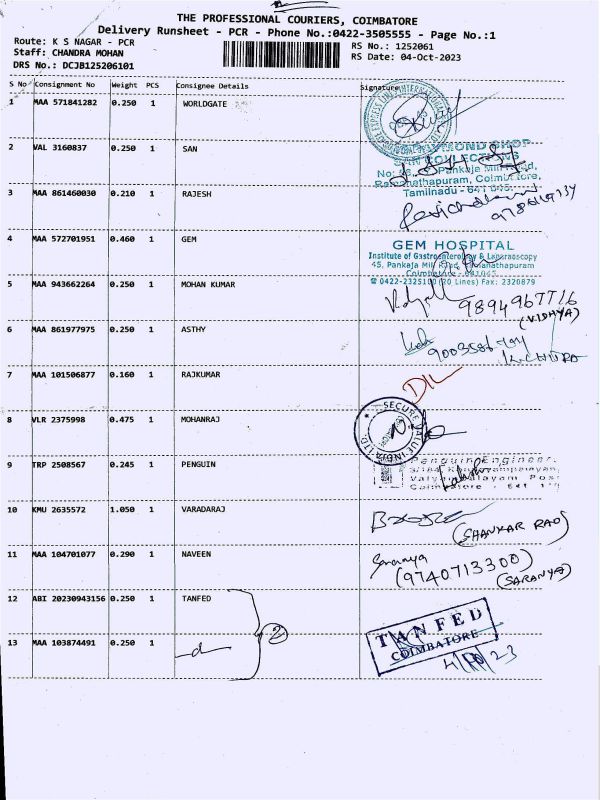 THE PROFESSIONAL COURIERS, COIMBATORE
Delivery Runsheet - PCR - Phone No.:0422-3505555 - Page No.:1
Route: K S NAGAR - PCR
Staff: CHANDRA MOHAN
DRS No.: DCJB125206101
RS No.: 1252061
RS Date: 04-Oct-2023
S No Consignment No Weight PCS Consignee Details Signature
1 MAA 571841282 0.250 1 WORLDGATE
2 VAL 3160837 0.250 1 SAN
Pankaja Mill Road,
Ramanathapuram, Coimbatore,
Tamilnadu - 641 045.
3 MAA 861460030 0.210 1 RAJESH
4 MAA 572701951 0.460 1 GEM
GEM HOSPITAL
Institute of Gastroenterology & Laparoscopy
45, Pankaja Mill Road, Ramanathapuram
Coimbatore - 641045
0422-2325100 (20 Lines) Fax: 2320879
5 MAA 943662264 0.250 1 MOHAN KUMAR
9894967716
(VIDHYA)
6 MAA 861977975 0.250 1 ASTHY
7 MAA 101506877 0.160 1 RAJKUMAR
8 VLR 2375998 0.475 1 MOHANRAJ
SECURE VALUE INDIA LTD
9 TRP 2508567 0.245 1 PENGUIN
Penguin Engineer
10 KMU 2635572 1.050 1 VARADARAJ
(SHANKAR RAO)
11 MAA 104701077 0.290 1 NAVEEN
Saranya
(9740713300)
(SARANYA)
12 ABI 20230943156 0.250 1 TANFED
2
TANFED
COIMBATORE
4/10/23
13 MAA 103874491 0.250 1